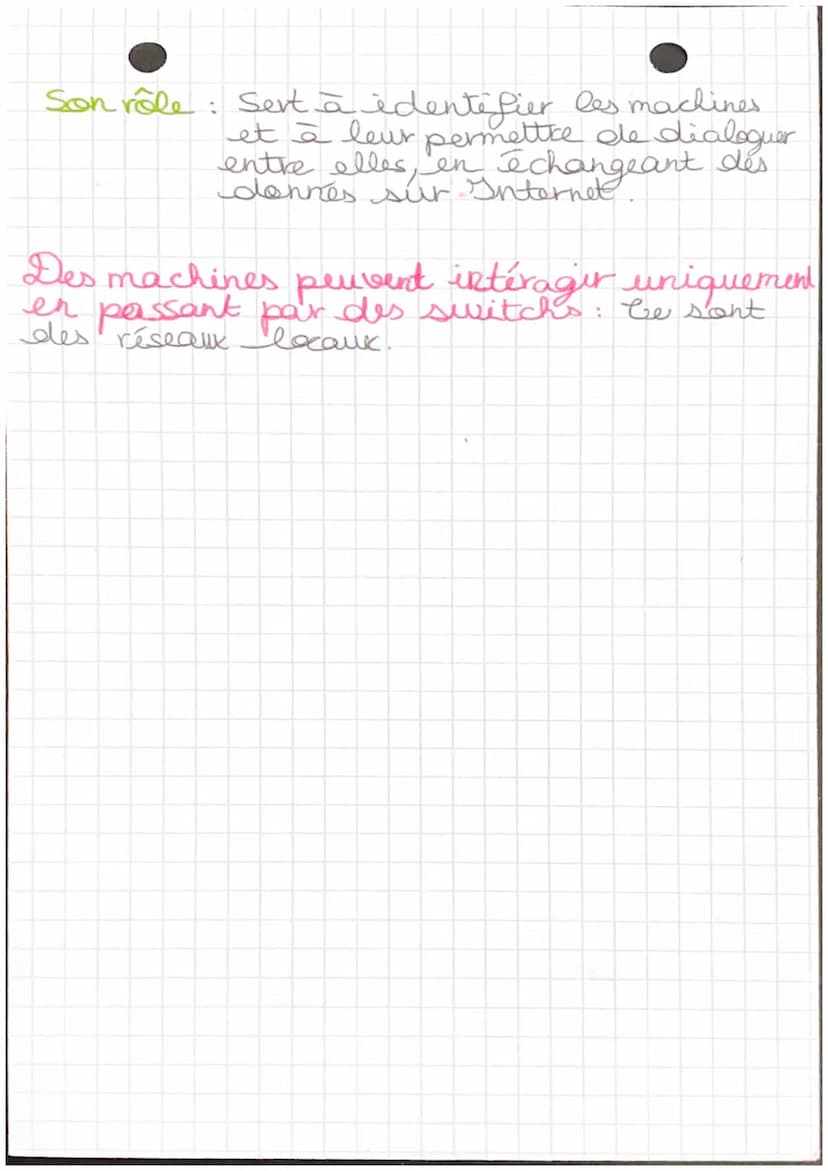 Son rôle : Sert à identifier les machines
et à leur permettre de dialoguer
entre elles, en échangeant des
donnés sur Internet.
Des machines peuvent intéragir uniquement
en passant par des switchs : Ce sont
des réseaux locaux.